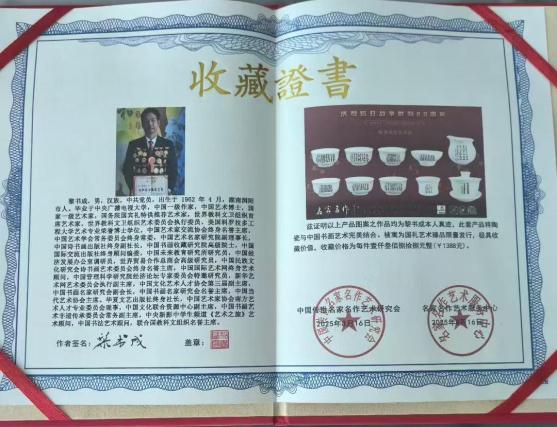 收藏證書
黎书成，男，汉族，中共党员，出生于1962年4月，湖南浏阳
市人，毕业于中央广播电视大学，中国一级作家，中国艺术博士，国
家一级艺术家，国务院国宾礼特供推荐艺术家，世界教科文卫组织首
席艺术家，世界教科文卫组织艺术委员会执行委员，美国科罗拉多工
程大学艺术专业荣誉博士学位，中国艺术家交流协会终身名誉主席，
中国艺术学会常务委员会终身常委，中国艺术名家研究院副理事长，
中国诗书画出版社终身副社长，中国书画收藏研究院高级院士，中国
国际交流出版社终身顾问编委，中国未来教育研究员研究员，中国经
济发展办公室调研员，世界贸易合作总商会高级研究员，中国民族文
化研究会诗书画艺术委员会终身名誉主席，中国国际艺术网终身艺术
顾问，中国管理科学研究院经济论坛专家委员会特邀副主席，新华艺
术网艺术委员会执行副主席，中国文化艺术人才协会第三届副主席，
中国书画名家研究会副会长，中国书画名家研究会名誉主席，中国当
代艺术协会主席，华夏文艺出版社终身社长，中国艺术家协会南方艺
术人才专业委员会理事，中国文化联合签源中心副主席，中国书画艺
术非遗传承委员会常务副主席，中央新影中学生频道《艺术之旅》艺
术顾问，中国书法艺术顾问，联合国教科文组织名誉主席。
作者签名：黎书成 盖章：
庆祝抗日战争胜利80周年
名家名作
兹证明以上产品图案之作品均为黎书成本人真迹，此套产品将陶
瓷与中国书画艺术完美结合，被寓为国礼艺术臻品限量发行，极具收
藏价值。收藏价格为每件壹仟叁佰捌拾捌元整（￥1388元）。
中国传推名家名作艺术研究会
2025年3月16日
名家名作艺术服务中心
2025年3月16日